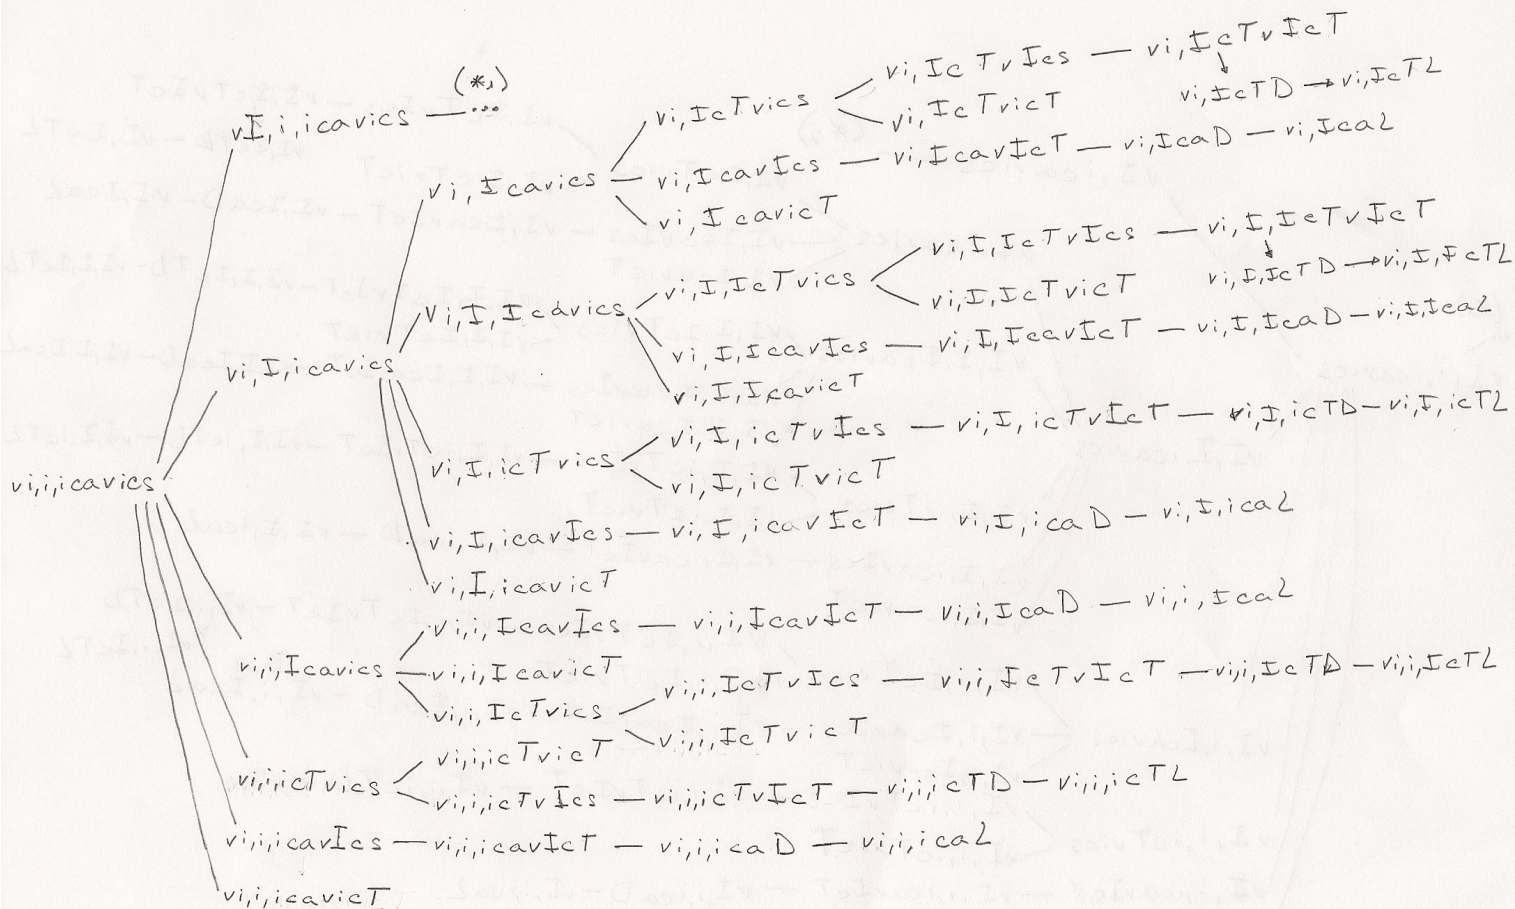 vi,IcTvIcs — vi,IcTvIcT
(*,)
vI,i,icavics — ...
vi,IcTvics
vi,IcTvicT
vi,IcTD → vi,IcTL
vi,Icavics — vi,IcavIcs — vi,IcavIcT — vi,IcaD — vi,IcaL
vi,IcavicT
vi,I,IcTvIcs — vi,I,IcTvIcT
vi,I,IcTvics
vi,I,IcTvicT
vi,I,IcTD → vi,I,IcTL
vi,I,Icavics
vi,I,IcavIcs — vi,I,IcavIcT — vi,I,IcaD — vi,I,IcaL
vi,I,icavics
vi,I,IcavicT
vi,I,icTvIcs — vi,I,icTvIcT — vi,I,icTD — vi,I,icTL
vi,I,icTvics
vi,I,icTvicT
vi,i,icavics
vi,I,icavIcs — vi,I,icavIcT — vi,I,icaD — vi,I,icaL
vi,I,icavicT
vi,i,IcavIcs — vi,i,IcavIcT — vi,i,IcaD — vi,i,IcaL
vi,i,Icavics — vi,i,IcavicT
vi,i,IcTvIcs — vi,i,IcTvIcT — vi,i,IcTD — vi,i,IcTL
vi,i,IcTvics
vi,i,IcTvicT
vi,i,icTvicT
vi,i,icTvics
vi,i,icTvIcs — vi,i,icTvIcT — vi,i,icTD — vi,i,icTL
vi,i,icavIcs — vi,i,icavIcT — vi,i,icaD — vi,i,icaL
vi,i,icavicT